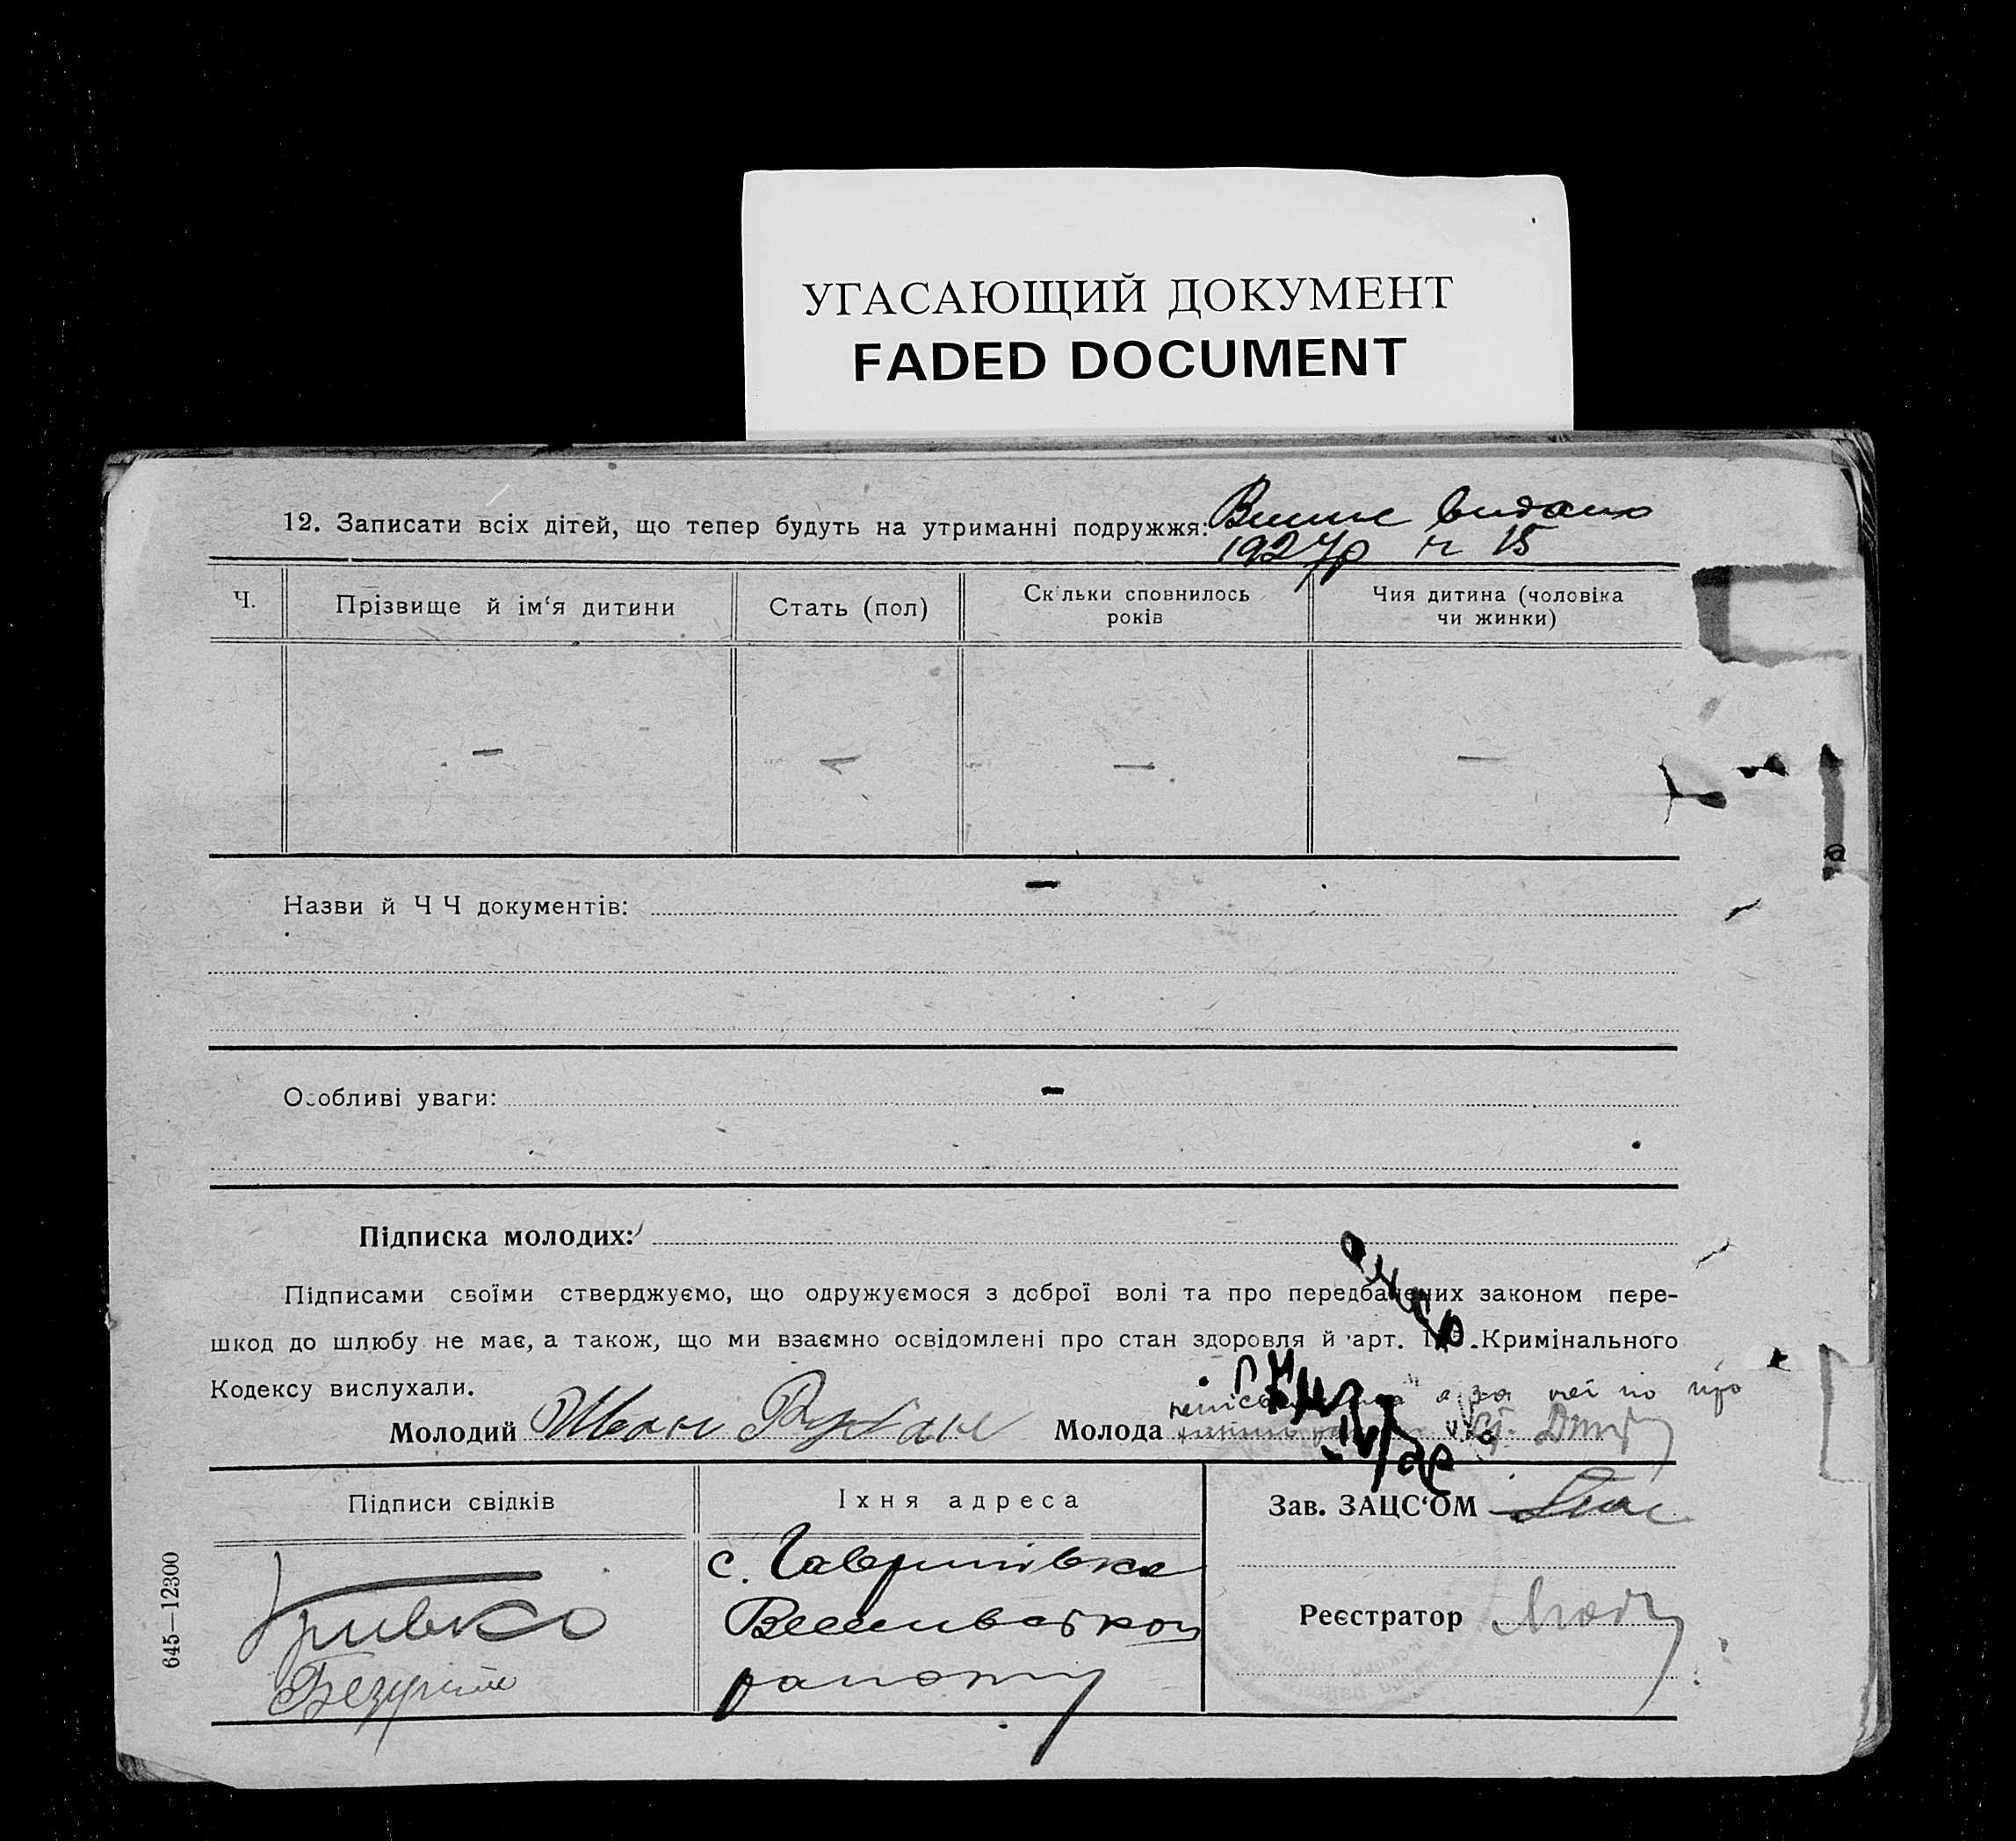 УГАСАЮЩИЙ ДОКУМЕНТ
FADED DOCUMENT
12. Записати всіх дітей, що тепер будуть на утриманні подружжя: Випис видано
1927р н 15
Ч.
Прізвище й ім'я дитини
Стать (пол)
Скільки сповнилось
років
Чия дитина (чоловіка
чи жинки)
— — — —
Назви й Ч Ч документів: —
Особливі уваги: —
Підписка молодих:
Підписами своїми стверджуємо, що одружуємося з доброї волі та про передбачених законом пере-
шкод до шлюбу не має, а також, що ми взаємно освідомлені про стан здоровля й арт. Кримінального
Кодексу вислухали.
Молодий Иван Рубан Молода
Підписи свідків
Їхня адреса
Зав. ЗАЦС'ОМ
Кривко
с. Гаврилівка
району
Реєстратор
645—12300